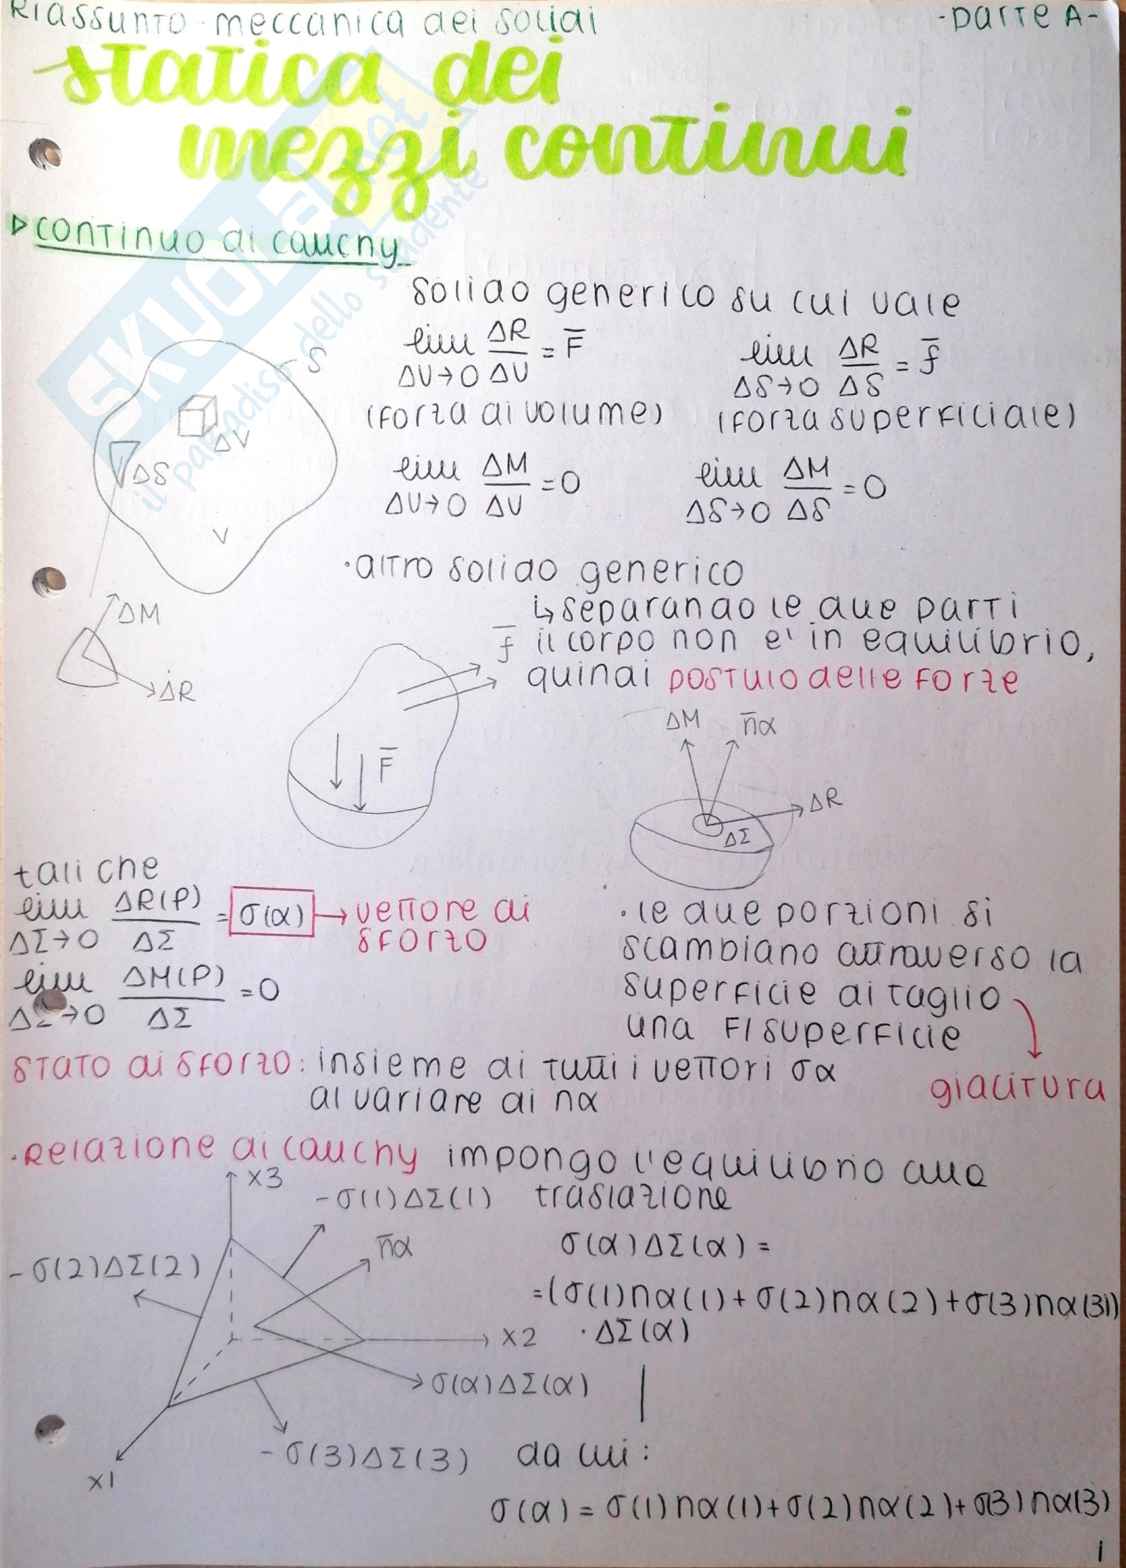 Riassunto meccanica dei solidi -parte A-
statica dei
mezzi continui
▷ continuo di cauchy
solido generico su cui vale
lim ΔR/ΔV = F̅ lim ΔR/ΔS = f̅
ΔV→0 ΔS→0
(forza di volume) (forza superficiale)
lim ΔM/ΔV = 0 lim ΔM/ΔS = 0
ΔV→0 ΔS→0
S
ΔV
ΔS
V
ΔM
ΔR
·altro solido generico
↳separando le due parti
il corpo non e' in equilibrio,
quindi postulo delle forze
f̅
F̅
ΔM n̅α
ΔR
ΔΣ
tali che
lim ΔR(P)/ΔΣ = σ(α) → vettore di
ΔΣ→0 sforzo
lim ΔM(P)/ΔΣ = 0
ΔΣ→0
·le due porzioni si
scambiano attraverso la
superficie di taglio
una F/superficie
giacitura
stato di sforzo: insieme di tutti i vettori σα
al variare di nα
·Relazione di cauchy impongo l'equilibrio alla
traslazione
x3
-σ(1)ΔΣ(1)
n̅α
-σ(2)ΔΣ(2)
x2
σ(α)ΔΣ(α)
-σ(3)ΔΣ(3)
x1
σ(α)ΔΣ(α) =
=(σ(1)nα(1)+σ(2)nα(2)+σ(3)nα(3))
·ΔΣ(α)
da cui:
σ(α) = σ(1)nα(1)+σ(2)nα(2)+σ(3)nα(3)
1
SKUOLA.net
il paradiso dello studente